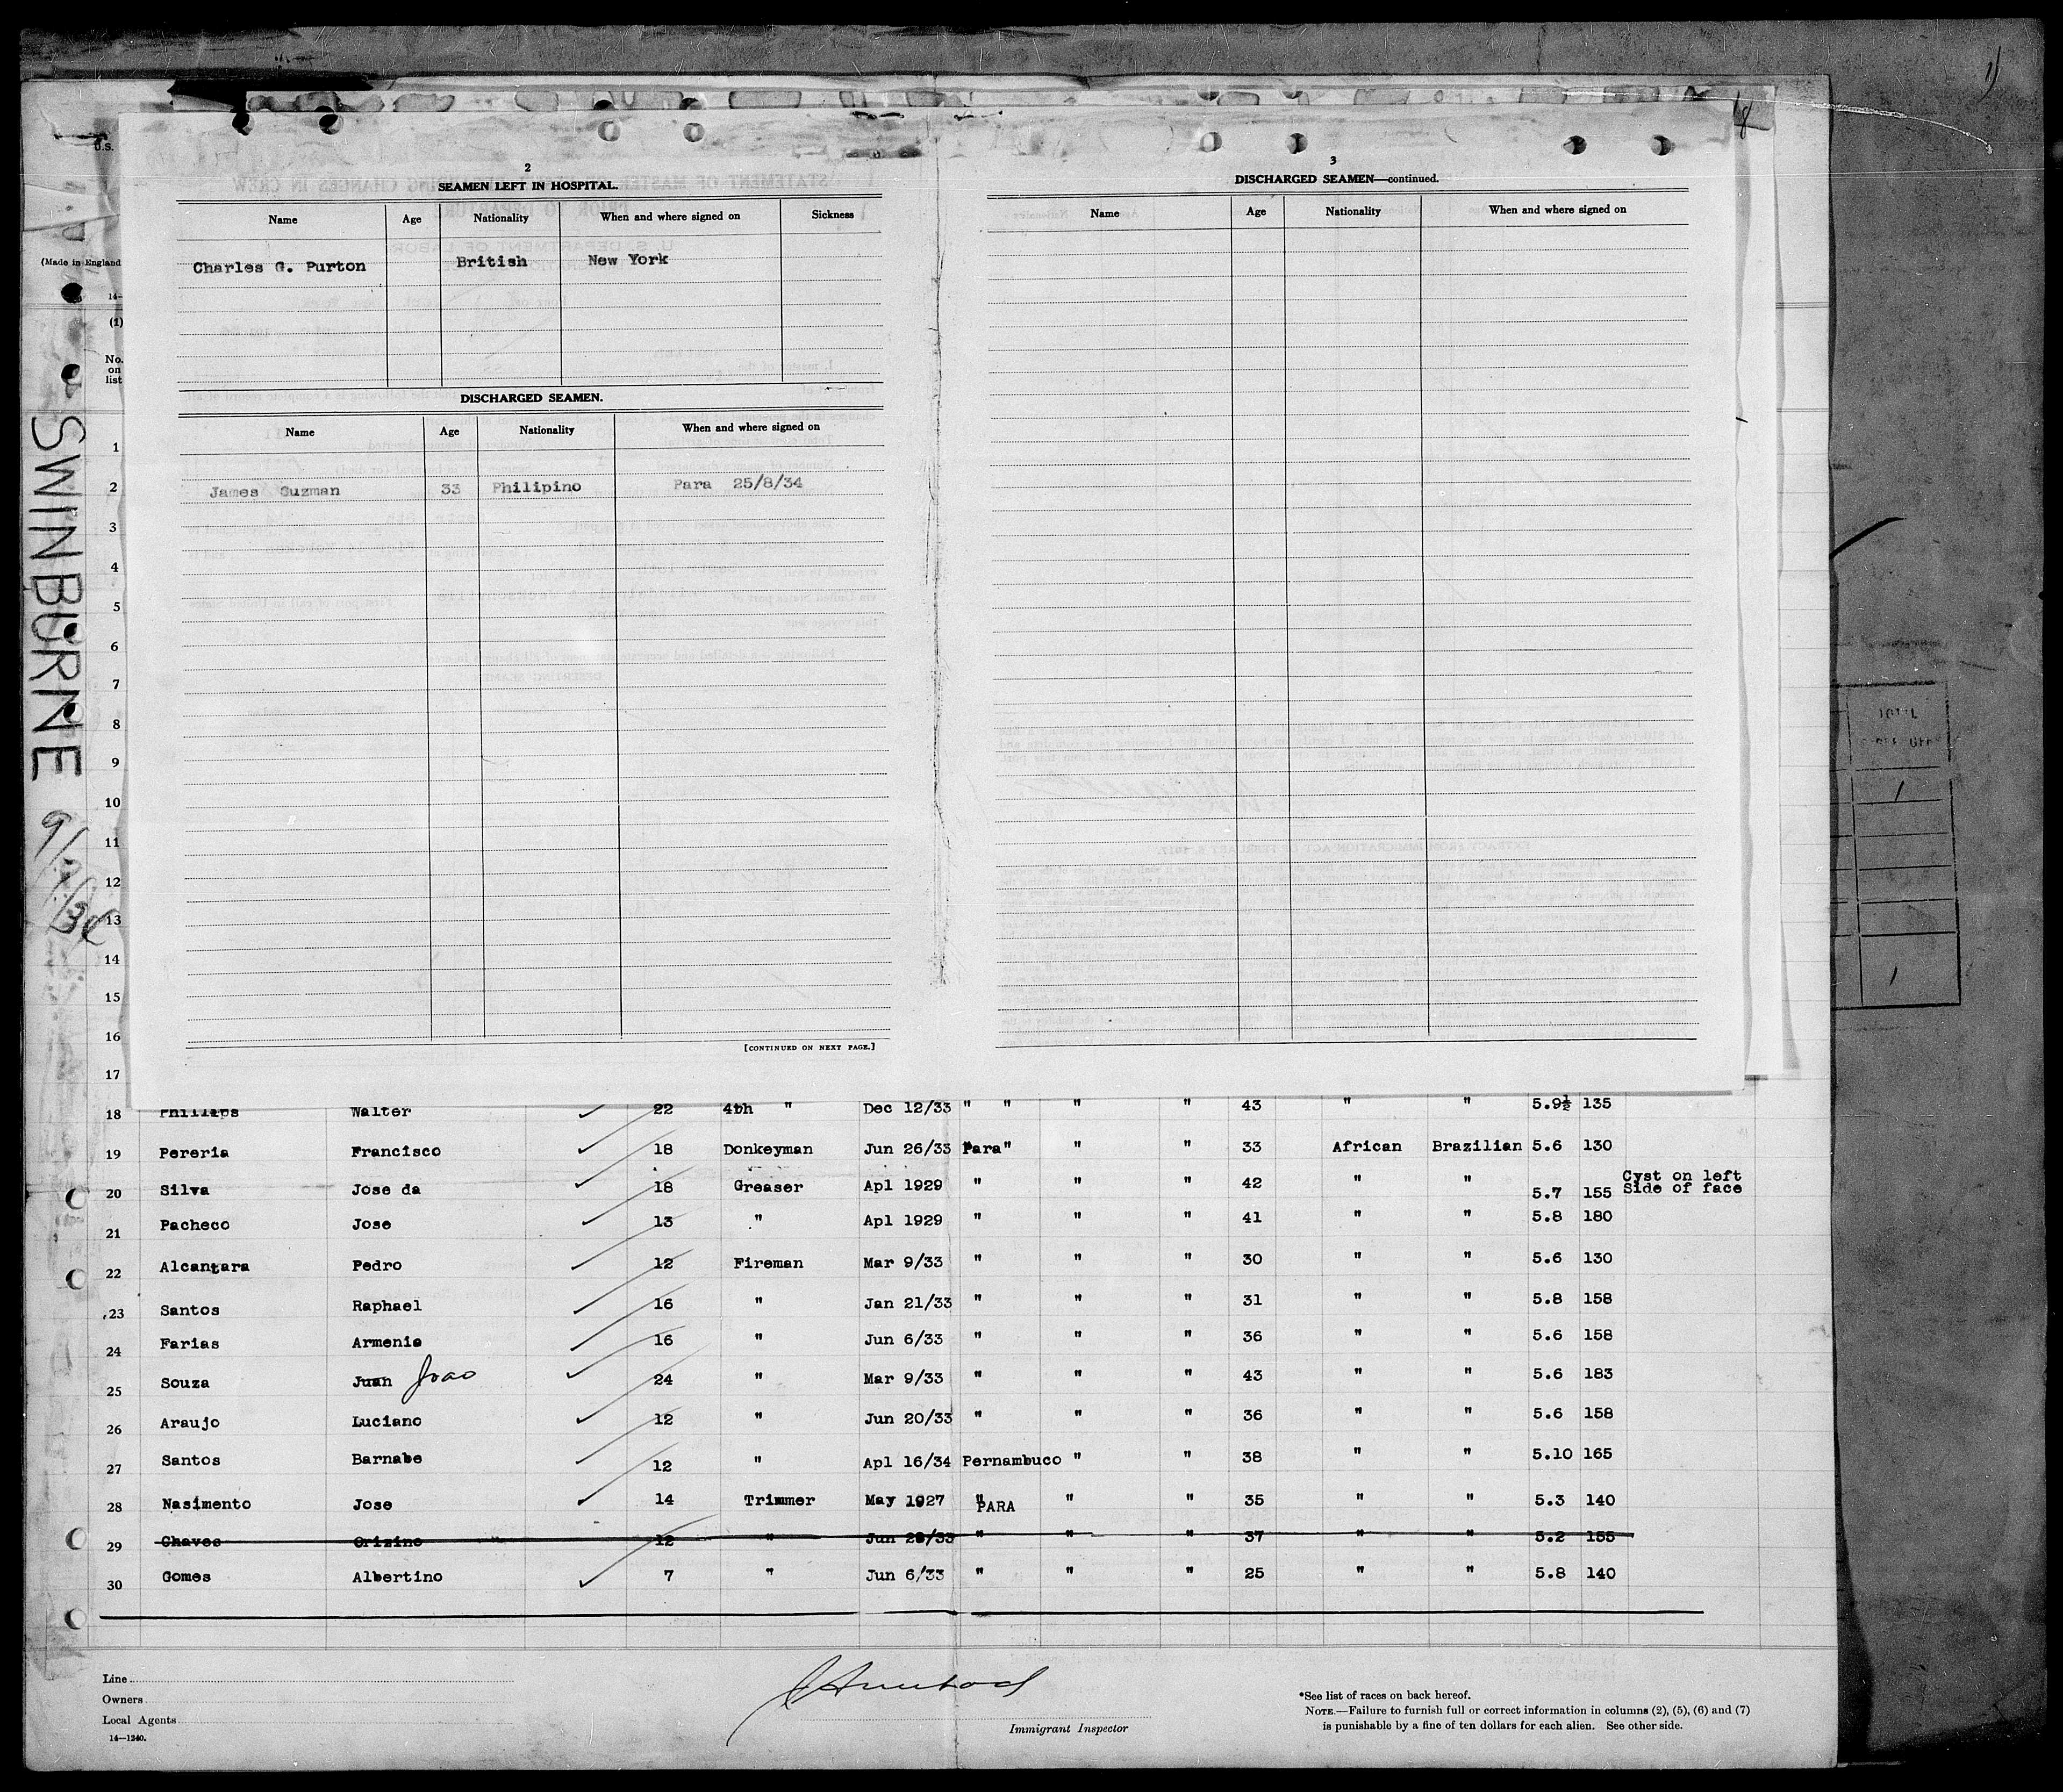 U.S.
(Made in England
14-
(1)
No.
on
list
SWINBURNE
2
SEAMEN LEFT IN HOSPITAL.
Name Age Nationality When and where signed on Sickness
Charles G. Purton British New York
DISCHARGED SEAMEN.
Name Age Nationality When and where signed on
James Guzman 33 Philipino Para 25/8/34
[CONTINUED ON NEXT PAGE.]
3
DISCHARGED SEAMEN—continued.
Name Age Nationality When and where signed on
1
2
3
4
5
6
7
8
9
10
11
12
13
14
15
16
17
18 Phillips Walter ✓ 22 4th " Dec 12/33 " " " " 43 " " 5.9½ 135
19 Pereria Francisco ✓ 18 Donkeyman Jun 26/33 Para" " " 33 African Brazilian 5.6 130
20 Silva Jose da ✓ 18 Greaser Apl 1929 " " " 42 " " 5.7 155 Cyst on left
Side of face
21 Pacheco Jose ✓ 13 " Apl 1929 " " " 41 " " 5.8 180
22 Alcantara Pedro ✓ 12 Fireman Mar 9/33 " " " 30 " " 5.6 130
23 Santos Raphael ✓ 16 " Jan 21/33 " " " 31 " " 5.8 158
24 Farias Armenio ✓ 16 " Jun 6/33 " " " 36 " " 5.6 158
25 Souza Juan Joao ✓ 24 " Mar 9/33 " " " 43 " " 5.6 183
26 Araujo Luciano ✓ 12 " Jun 20/33 " " " 36 " " 5.6 158
27 Santos Barnabe ✓ 12 " Apl 16/34 Pernambuco " " 38 " " 5.10 165
28 Nasimento Jose ✓ 14 Trimmer May 1927 " PARA " " 35 " " 5.3 140
29 Chaves Orizino 12 " Jun 29/33 " " " 37 " " 5.2 155
30 Gomes Albertino ✓ 7 " Jun 6/33 " " " 25 " " 5.8 140
Line
Owners
Local Agents
14—1240.
Immigrant Inspector
*See list of races on back hereof.
NOTE.—Failure to furnish full or correct information in columns (2), (5), (6) and (7)
is punishable by a fine of ten dollars for each alien. See other side.